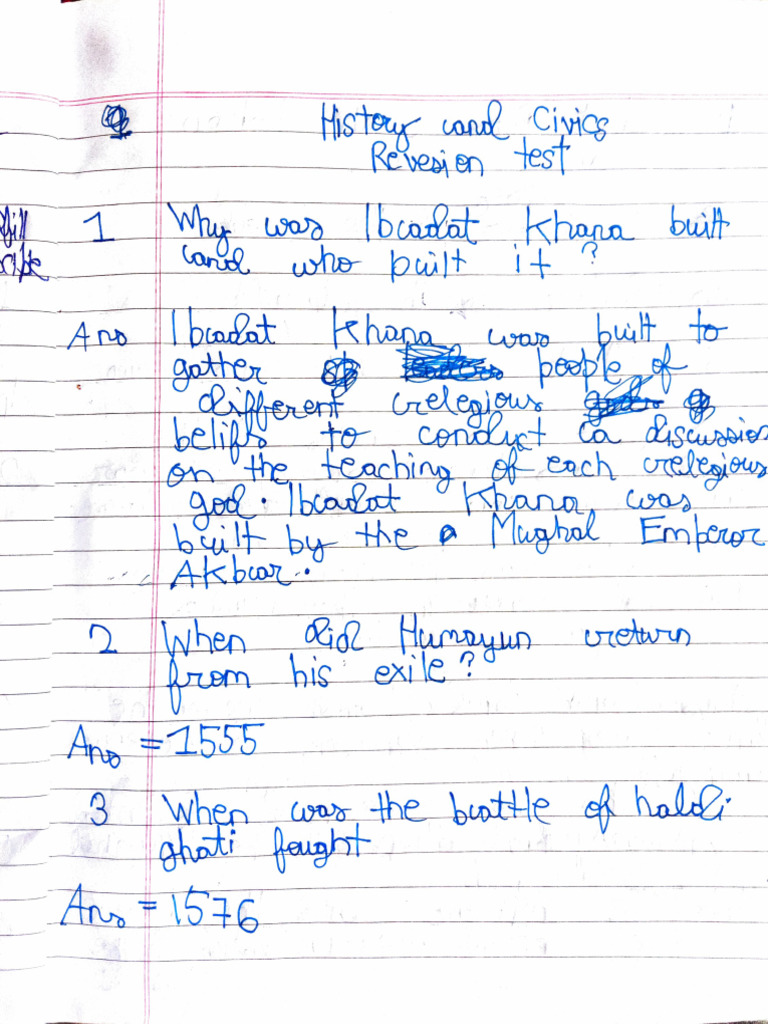 History and Civics
Revesion test
1 Why was Ibadat Khana built
and who built it ?
Ans Ibadat Khana was built to
gather people of
different relegious
belifs to conduct a discussion
on the teaching of each relegious
god. Ibadat Khana was
built by the Mughal Emperor
Akbar.
2 When did Humayun return
from his exile ?
Ans = 1555
3 When was the battle of haldi
ghati fought
Ans = 1576